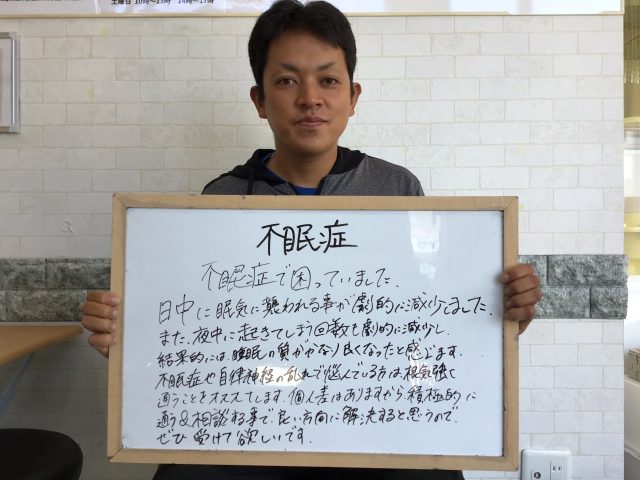 土曜日 10時〜13時 14時〜17時
不眠症
不眠症で困っていました。
日中に眠気に襲われる事が劇的に減少しました。
また、夜中に起きてしまう回数も劇的に減少し、
結果的には、睡眠の質がかなり良くなったと感じます。
不眠症や自律神経の乱れで悩んでいる方は、根気強く
通うことをオススメします。個人差はありますから、積極的に
通う&相談する事で、良い方向に解決すると思うので、
ぜひ受けて欲しいです。